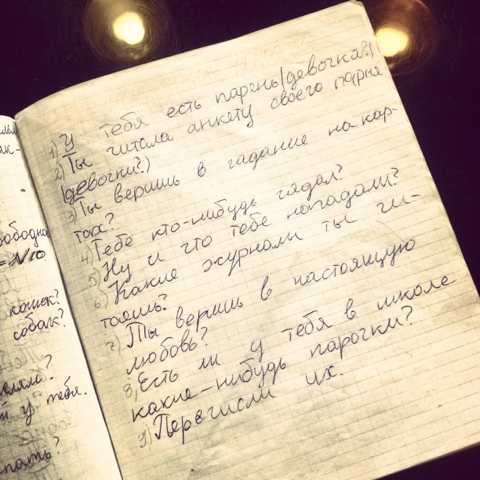 ободна
кошек?
собак?
й у тебя.
1) У тебя есть парень/девочка?)
2) Ты читала анкету своего парня
(девочки?)
3) Ты веришь в гадание на кар-
тах?
4) Тебе кто-нибудь гадал?
5) Ну и что тебе нагадали?
6) Какие журналы ты чи-
таешь?
7) Ты веришь в настоящую
любовь?
8) Есть ли у тебя в школе
какие-нибудь парочки?
9) Перечисли их.